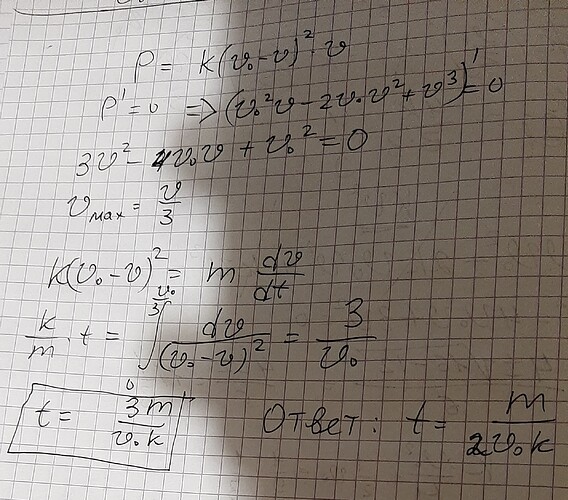 P = k(v₀-v)²·v
P' = 0 => (v₀²v - 2v₀v² + v³)' = 0
3v² - 4v₀v + v₀² = 0
v_max = v/3
k(v₀-v)² = m dv/dt
k/m · t = ∫₀^(v₀/3) dv/(v₀-v)² = 3/v₀
t = 3m/v₀k Ответ: t = m/2v₀k